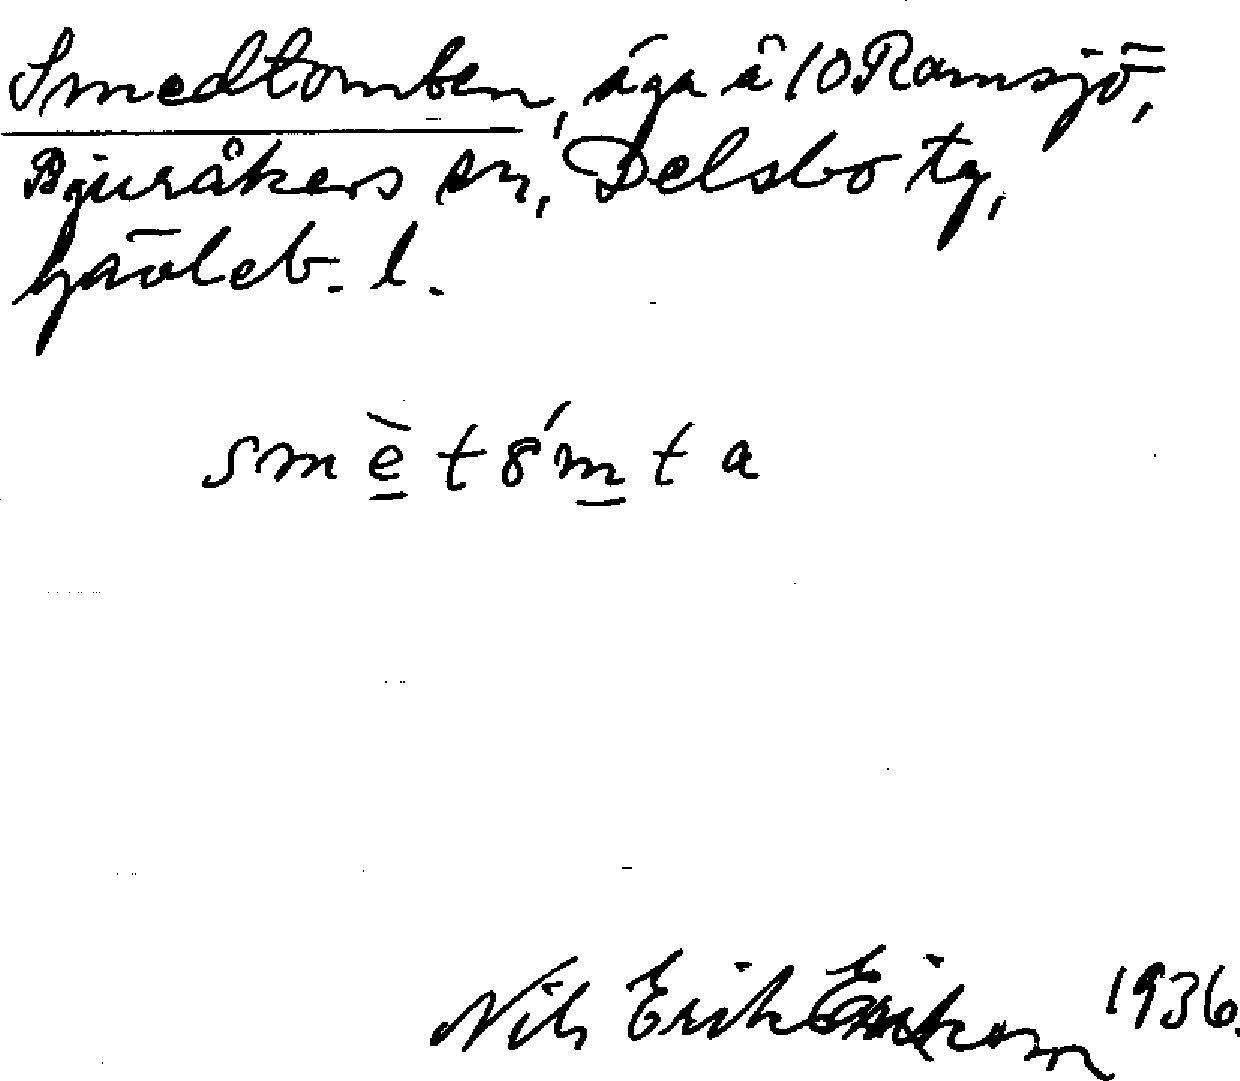 Smedtomten, äga å 10 Ramsjö,
Bjuråkers sn, Delsbo tg,
Gävleb. l.
smè̠t8́m̠ta
Nils Erik Erikson 1936.